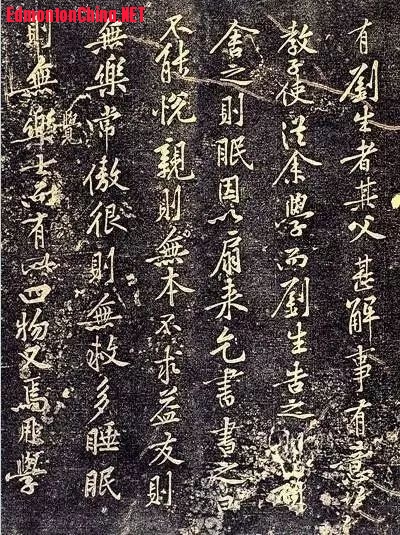 EdmontonChina.NET
有劉生者其父甚解事有意
教子使從余學而劉生告之則
舍之則眠因以扇来乞書書之曰
不能悅親則無本不求益友則
無樂常傲很則無救多睡眠
則無藥覺士而有此四物又焉用學